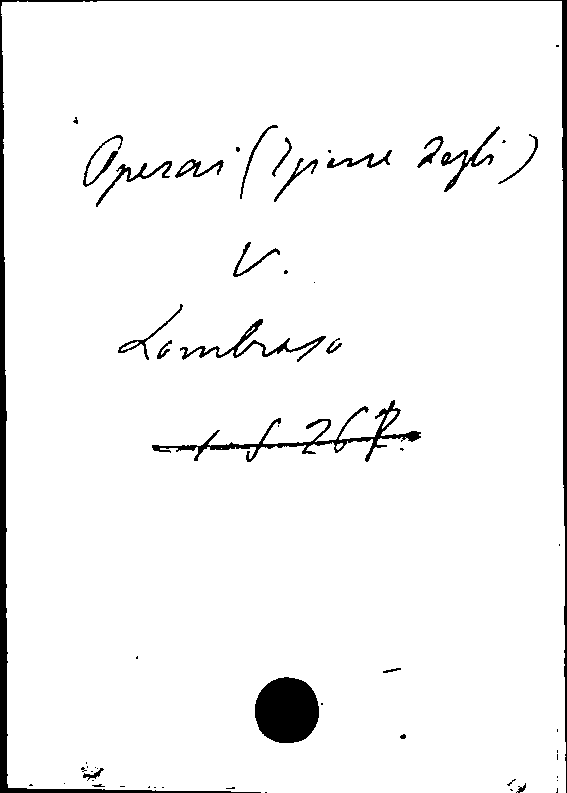 Operai (Igiene degli)
V.
Lombroso